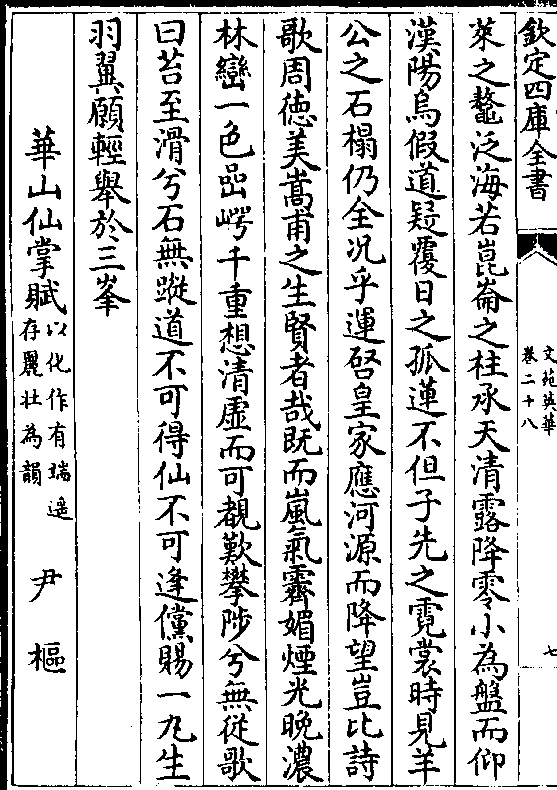 欽定四庫全書
文苑英華
卷二十八
七
萊之鼇泛海若崑崙之柱承天清露降零小為盤而仰
漢陽烏假道疑覆日之孤蓮不但子先之霓裳時見羊
公之石榻仍全況乎運啓皇家應河源而降望豈比詩
歌周徳美嵩甫之生賢者哉既而嵐氣霽媚煙光晩濃
林巒一色嵒崿千重想清虛而可覩歎攀陟兮無從歌
曰苔至滑兮石無蹤道不可得仙不可逢儻賜一丸生
羽翼願輕舉於三峯
華山仙掌賦以化作有端遥存麗壯為韻 尹樞